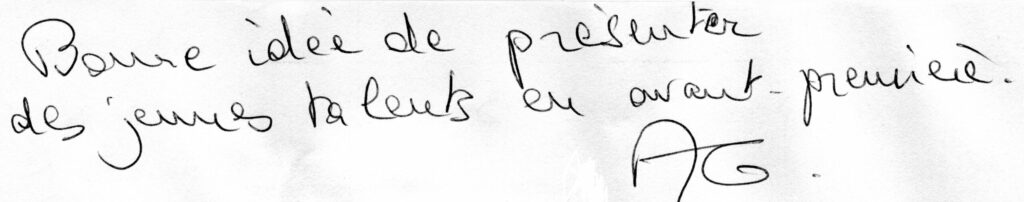 Bonne idée de présenter
des jeunes talents en avant-première.
AG.